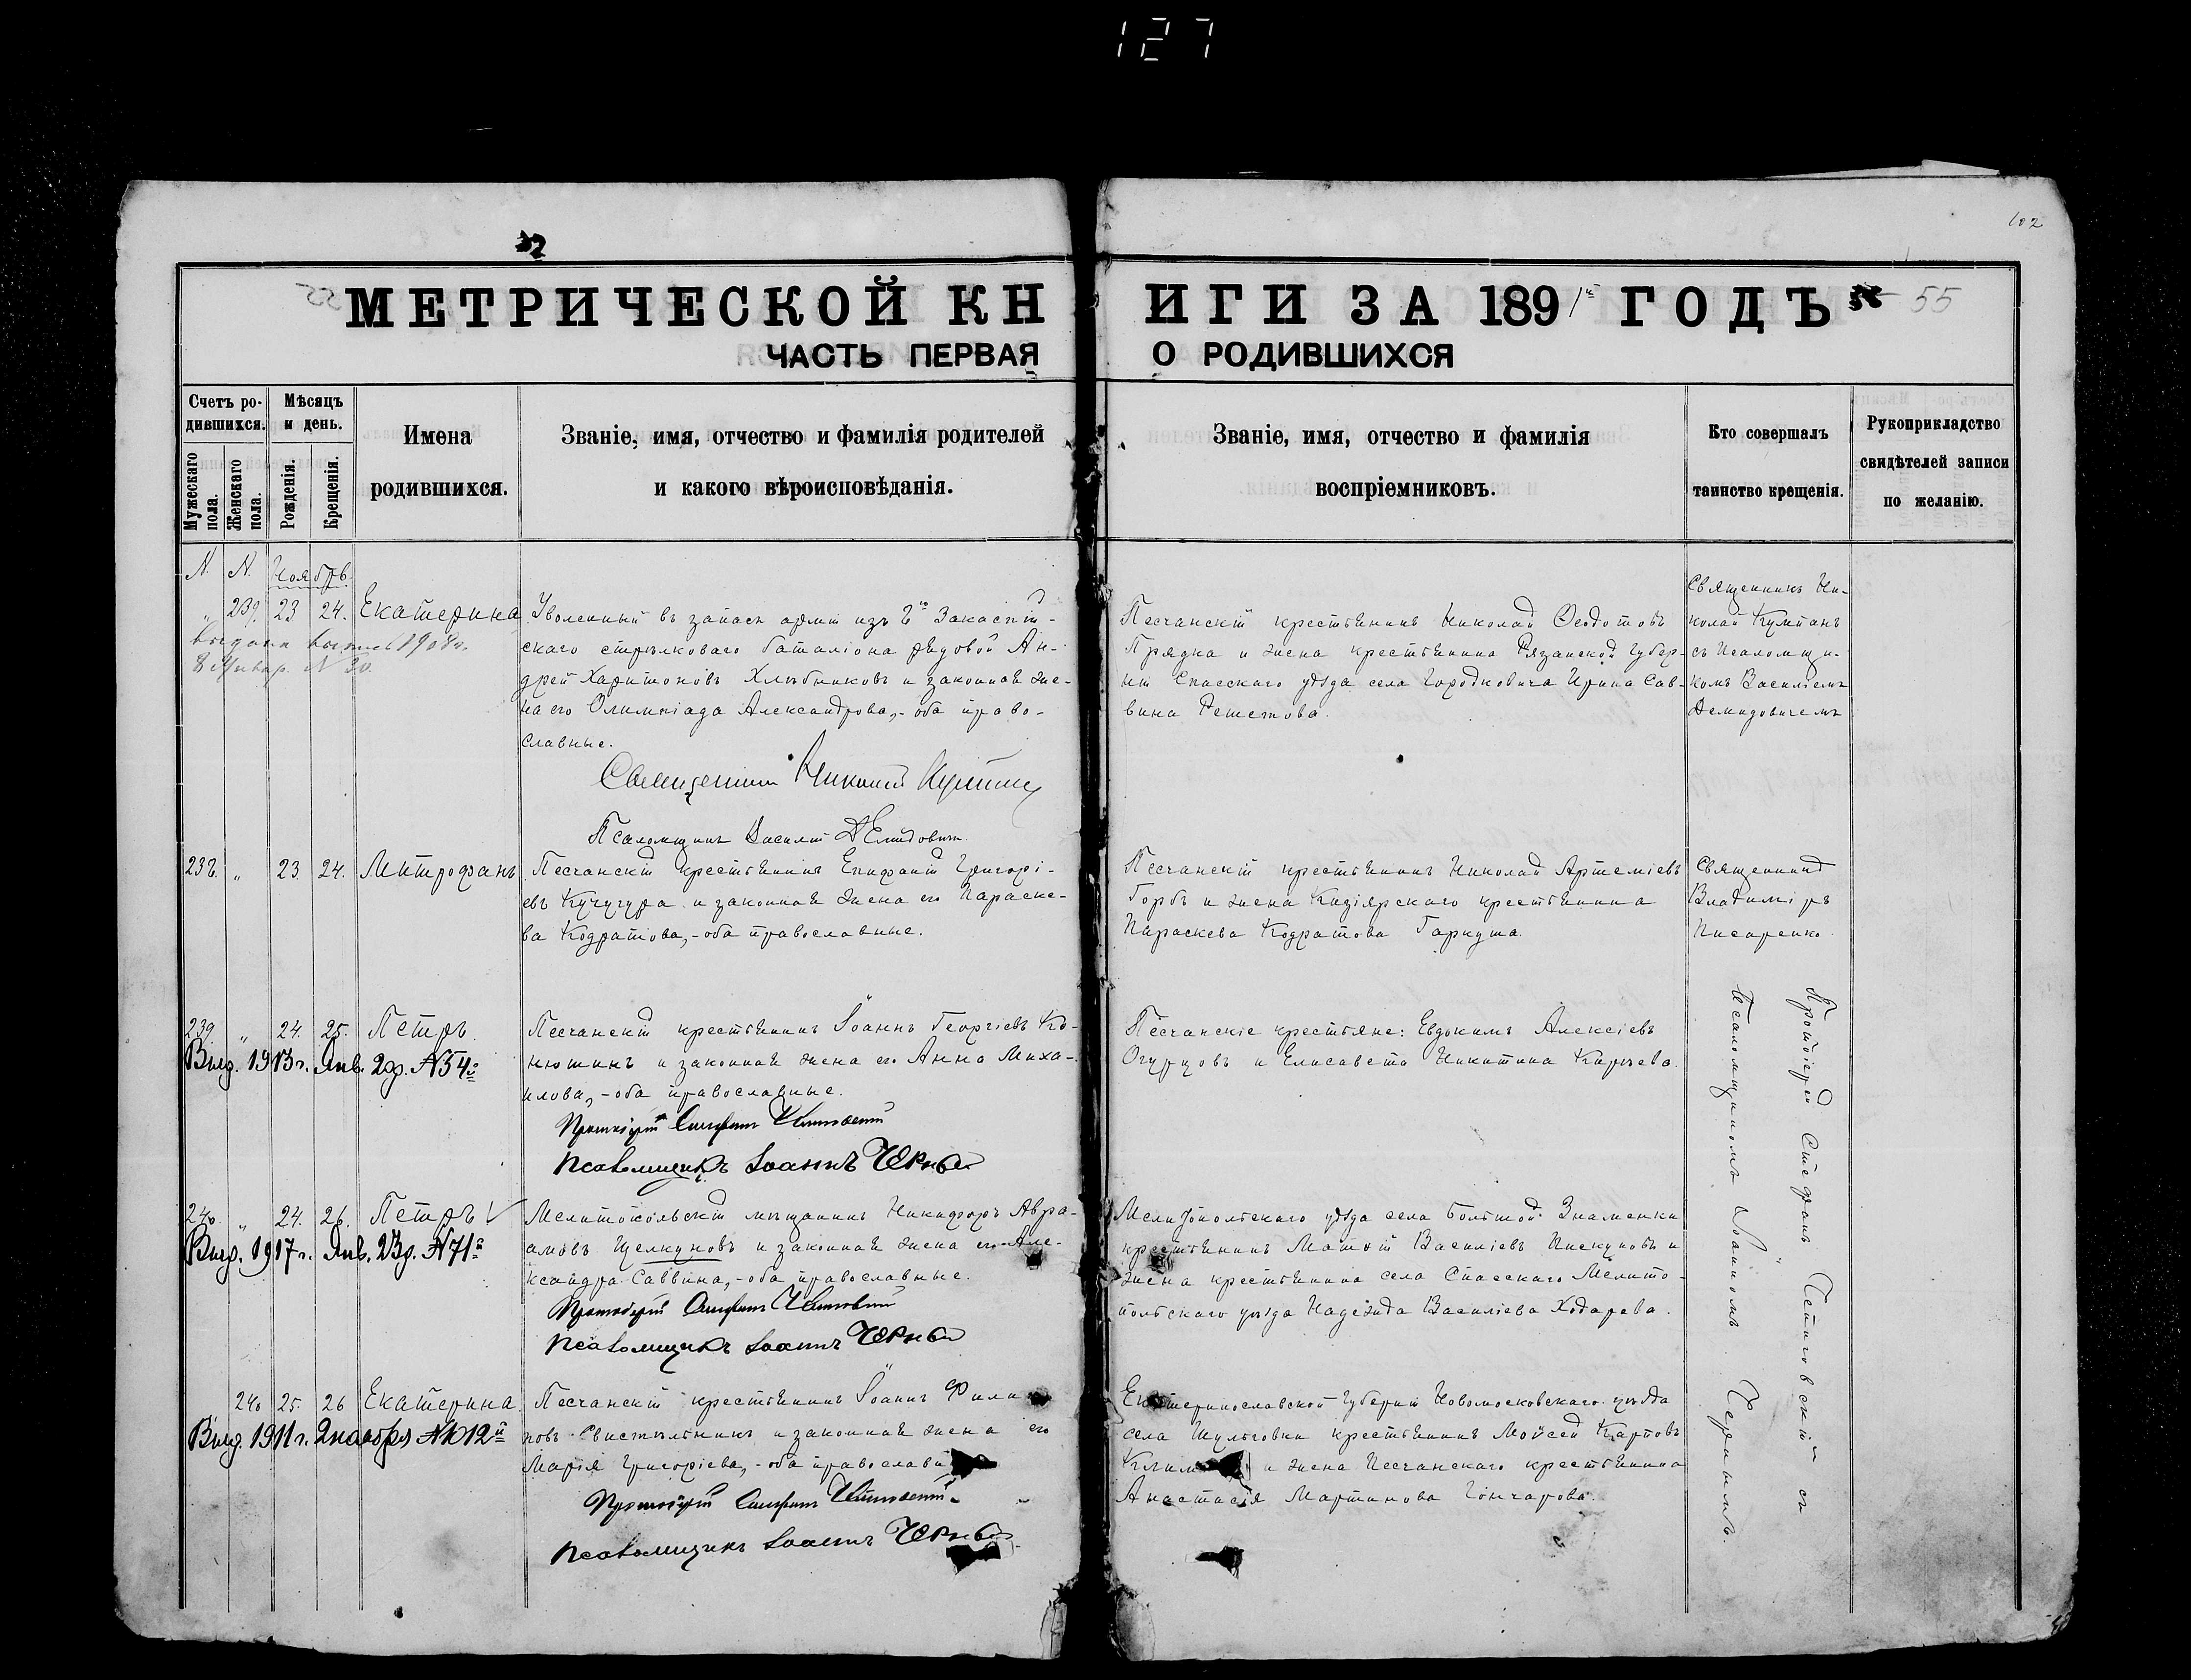 127
102
32
МЕТРИЧЕСКОЙ КНИГИ ЗА 1891й ГОДЪ 55
ЧАСТЬ ПЕРВАЯ О РОДИВШИХСЯ
Счетъ родившихся.
Мужескаго пола.
Женскаго пола.
Мѣсяцъ и день.
Рожденія.
Крещенія.
Имена
родившихся.
Званіе, имя, отчество и фамилія родителей
и какого вѣроисповѣданія.
Званіе, имя, отчество и фамилія
воспріемниковъ.
Кто совершалъ
таинство крещенія.
Рукоприкладство
свидѣтелей записи
по желанію.
N. N. Ноябрь.
" 239. 23 24. Екатерина
1908 г.
8 Январ. N 30.
Уволенный въ запасъ арміи изъ Закаспій-
скаго стрѣлковаго баталіона рядовой Ан-
дрей Харитоновъ Хлѣбниковъ и законная же-
на его Олимпіада Александрова,- оба право-
славные.
Священникъ Николай
Псаломщикъ Василій Демидовичъ
Песчанскій крестьянинъ Николай Ѳеодотовъ
Прядка и жена крестьянина Рязанской Губер-
ніи Спасскаго уѣзда села Городковича Ирина Сав-
вина Решетова.
Священникъ Ни-
колай
съ Псаломщи-
комъ Василіемъ
Демидовичемъ
238. " 23. 24. Митрофанъ
Песчанскій крестьянинъ Епифаній Григорі-
евъ Кучугура и законная жена его Параске-
ва Кодратова,- оба православные.
Песчанскій крестьянинъ Николай Артеміевъ
Горбъ и жена Казіярскаго крестьянина
Параскева Кодратова Гаркуша.
Священникъ
Владиміръ
Писаренко
239 " 24. 25. Петръ.
Выд. 1913 г. Янв. 2 д. N 54й
Песчанскій крестьянинъ Іоаннъ Георгіевъ Ко-
нюшинъ и законная жена его Анна Миха-
илова,- оба православные.
Протоіерей Стефанъ
Псаломщикъ Іоаннъ Черный
Песчанскіе крестьяне: Евдокимъ Алексіевъ
Огурцовъ и Елисавета Никитина Кирѣева.
Протоіерей Стефанъ съ
Псаломщикомъ Іоанномъ Чернымъ.
240. " 24. 26. Петръ
Выд. 1917 г. Янв. N 71й
Мелитопольскій мѣщанинъ Никифоръ Авра-
амовъ Щелкуновъ и законная жена его Але-
ксандра Саввина,- оба православные.
Протоіерей Стефанъ
Псаломщикъ Іоаннъ Черный
Мелитопольскаго уѣзда села Большой Знаменки
крестьянинъ Матѳій Василіевъ Пискуновъ и
жена крестьянина села Спасскаго Мелито-
польскаго уѣзда Надежда Василіева Ходарева.
240 25. 26 Екатерина.
Выд. 1911 г. 2 ноября N 1012й
Песчанскій крестьянинъ Іоаннъ Фили
повъ Свистѣльникъ и законная жена его
Марія Григоріева,- оба православн
Протоіерей Стефанъ
Псаломщикъ Іоаннъ Черный
Екатеринославской Губерніи Новомосковскаго уѣзда
села Шульговки крестьянинъ Мойсей Карповъ
и жена Песчанскаго крестьянина
Анастасія Мартинова Гончарова.